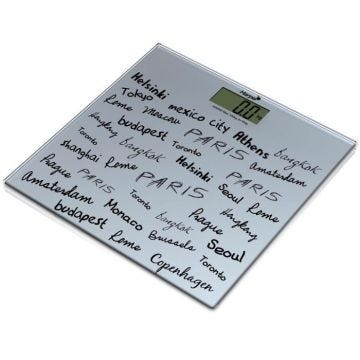 Harper
0.0
Helsinki mexico city Athens bangkok
Tokyo
Rome Moscow PARIS Toronto Amsterdam
Hongkong Toronto
budapest bangkok Helsinki Seoul Rome
shanghai Rome PARIS PARIS Hongkong
Prague PARIS Toronto Prague
Amsterdam Monaco bangkok Seoul
budapest Prague Brussels Toronto
Rome Toronto
Copenhagen